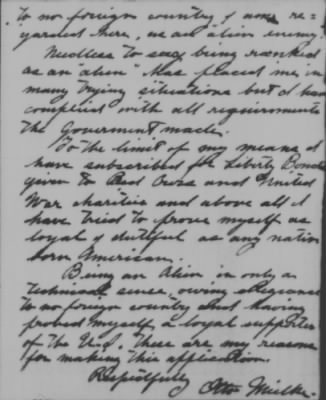 to no foreign country, I now re-
garded here, as an alien enemy.
Needless to say being ranked
as an "alien" has placed me in
many trying situations but I have
complied with all requirements
the Government made.
To the limit of my means I
have subscribed for Liberty Bonds
given to Red Cross and United
War charities and above all I
have tried to prove myself as
loyal & dutiful as any native
born American.
Being an Alien in only a
technical sense, owing allegiance
to no foreign country and having
proved myself a loyal supporter
of the U.S. these are my reasons
for making this application.
Respectfully
Otto Mielke.